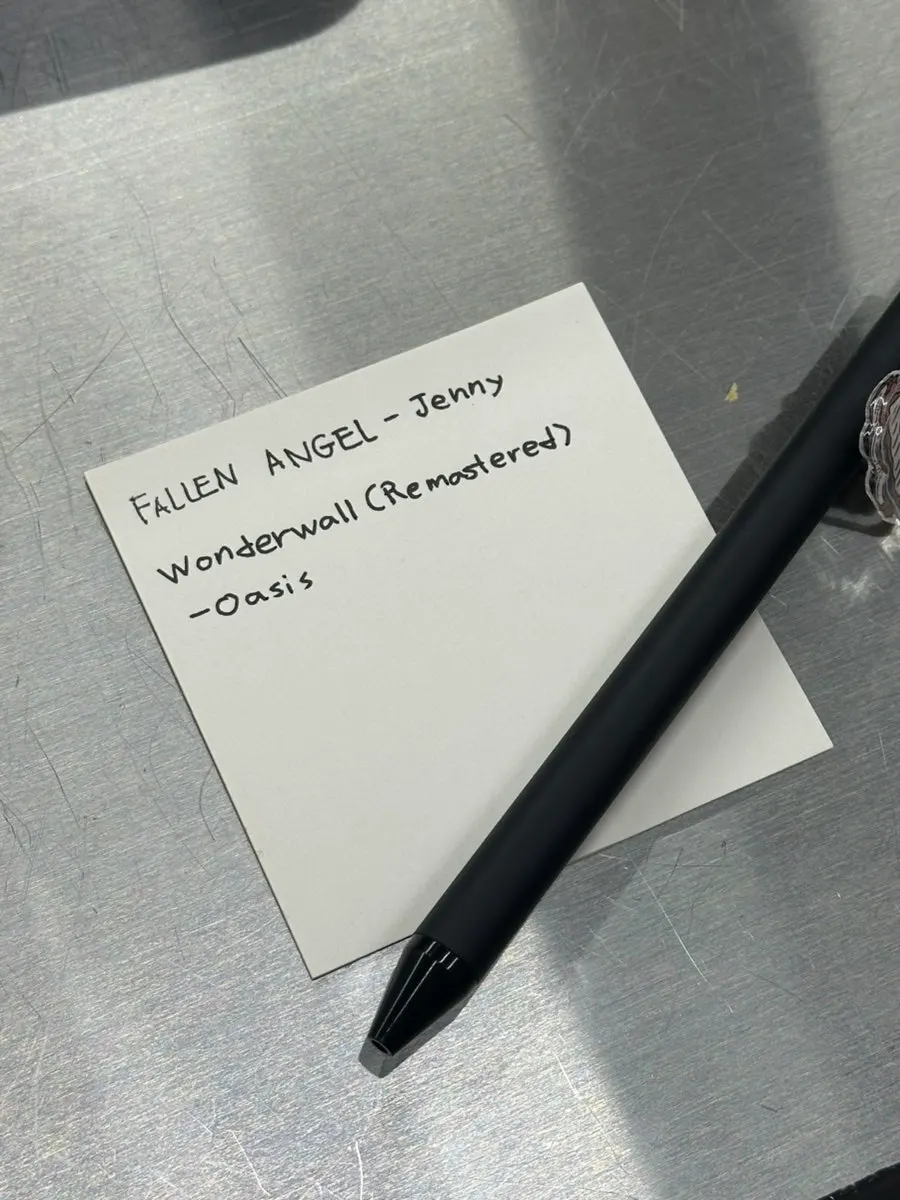 FALLEN ANGEL - Jenny
Wonderwall (Remastered)
- Oasis